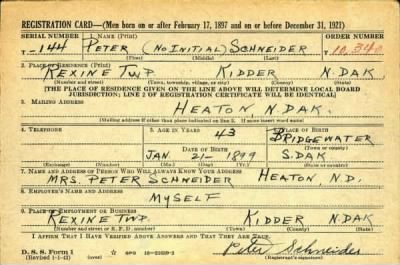 REGISTRATION CARD—(Men born on or after February 17, 1897 and on or before December 31, 1921)
SERIAL NUMBER 1. NAME (Print) ORDER NUMBER
T- 144 PETER (NO INITIAL) SCHNEIDER T 10,340
(First) (Middle) (Last)
2. PLACE OF RESIDENCE (Print)
KEXINE TWP KIDDER N. DAK
(Number and street) (Town, township, village, or city) (County) (State)
[THE PLACE OF RESIDENCE GIVEN ON THE LINE ABOVE WILL DETERMINE LOCAL BOARD
JURISDICTION; LINE 2 OF REGISTRATION CERTIFICATE WILL BE IDENTICAL]
3. MAILING ADDRESS
HEATON N. DAK.
[Mailing address if other than place indicated on line 2. If same insert word same]
4. TELEPHONE 5. AGE IN YEARS 6. PLACE OF BIRTH
43 BRIDGEWATER
DATE OF BIRTH (Town or county)
JAN 21- 1899 S. DAK
(Exchange) (Number) (Mo.) (Day) (Yr.) (State or country)
7. NAME AND ADDRESS OF PERSON WHO WILL ALWAYS KNOW YOUR ADDRESS
MRS. PETER SCHNEIDER HEATON, N.D.
8. EMPLOYER'S NAME AND ADDRESS
MYSELF
9. PLACE OF EMPLOYMENT OR BUSINESS
KEXINE TWP. KIDDER N. DAK
(Number and street or R. F. D. number) (Town) (County) (State)
I AFFIRM THAT I HAVE VERIFIED ABOVE ANSWERS AND THAT THEY ARE TRUE.
D. S. S. Form 1
(Revised 1-1-42) (over) GPO Peter Schneider